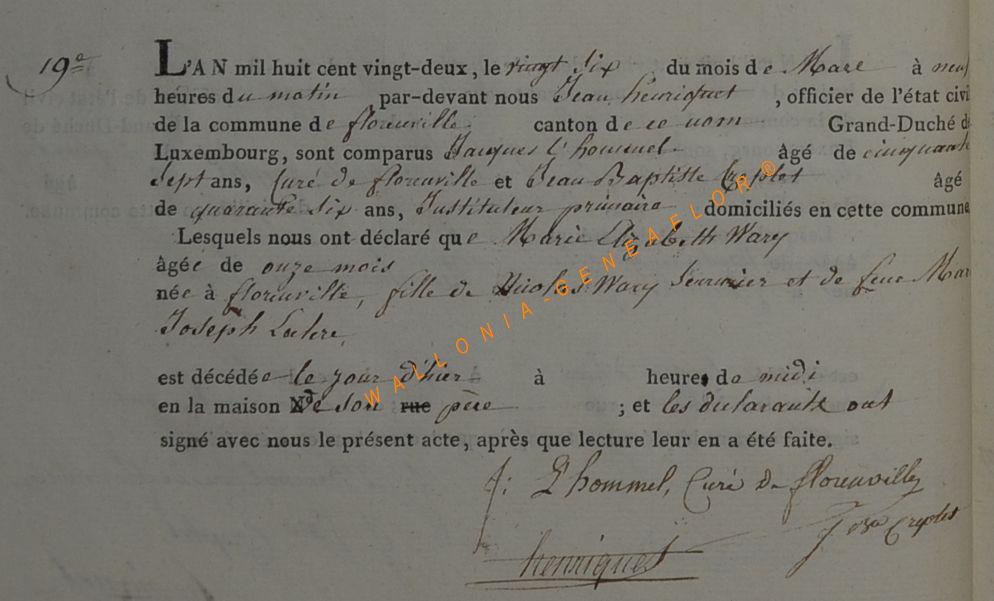 19e
L'AN mil huit cent vingt-deux, le vingt six du mois de Mars à neuf
heures du matin par-devant nous Jean henriquet, officier de l'état civil
de la commune de florenville canton de ce nom Grand-Duché de
Luxembourg, sont comparus Jacques L'hommel âgé de cinquante
sept ans, Curé de florenville et Jean Baptiste Creplet âgé
de quarante six ans, Instituteur primaire domiciliés en cette commune
Lesquels nous ont déclaré que Marie Elizabeth Wary
âgée de onze mois
née à florenville, fille de Nicolas Wary Serrurier et de feue Marie
Joseph
est décédée le jour d'hier à heure de midi
en la maison de son rue père ; et les déclarants ont
signé avec nous le présent acte, après que lecture leur en a été faite.
J: L'hommel, Curé de florenville
J Bte Creplet
henriquet
WALLONIA-GENEAFLOR®